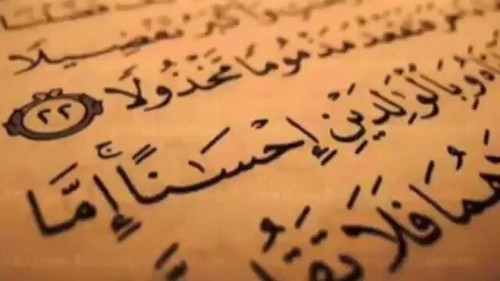 تَفْضِيلًا
فَتَقْعُدَ مَذْمُومًا مَّخْذُولًا ٢٢
وَبِالْوَٰلِدَيْنِ إِحْسَـٰنًا إِمَّا
هُمَا فَلَا